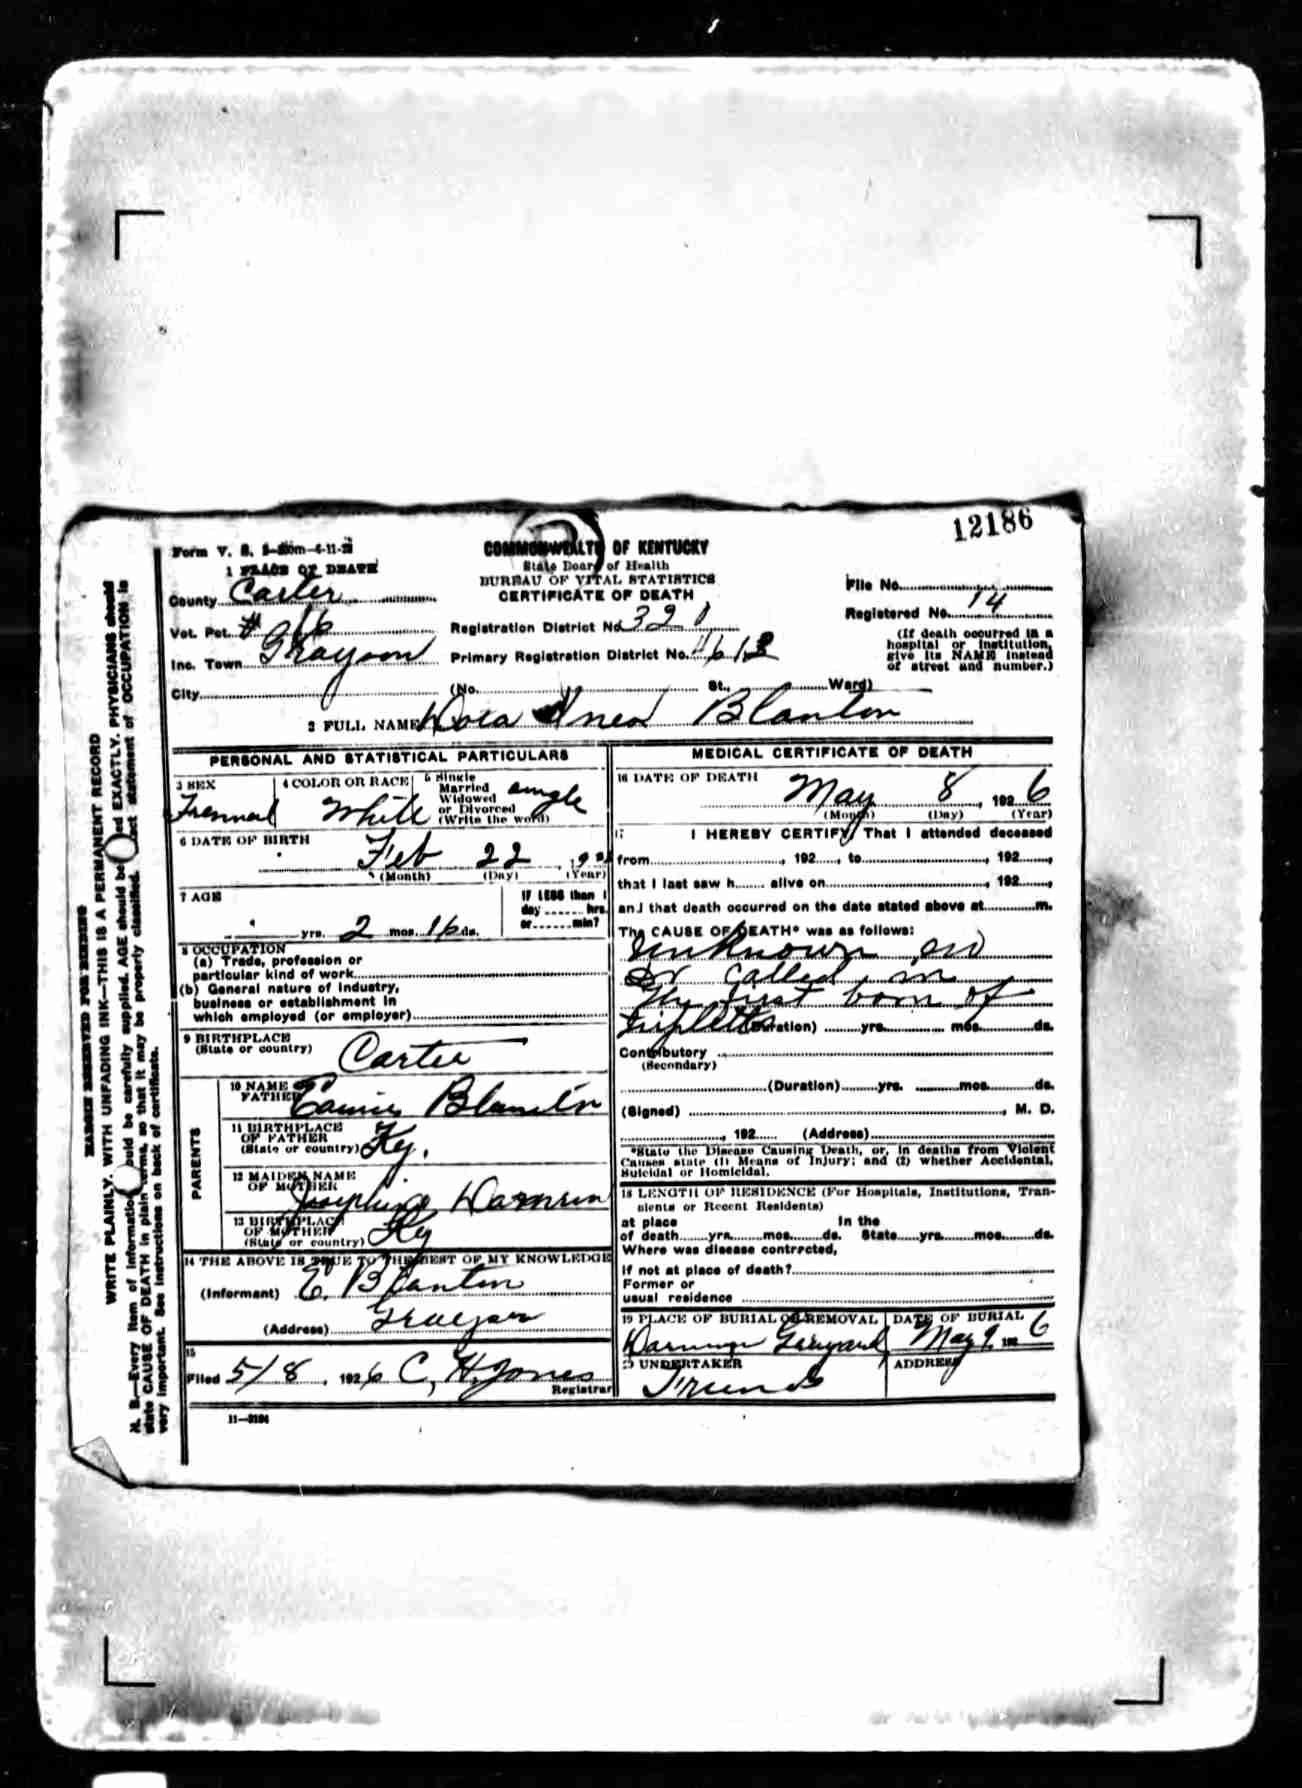 12186
Form V. S.
COMMONWEALTH OF KENTUCKY
State Board of Health
BUREAU OF VITAL STATISTICS
CERTIFICATE OF DEATH
1 PLACE OF DEATH
County Carter
Vot. Pct. # 16
Inc. Town Grayson
City
Registration District No 320
Primary Registration District No.
(No. St., Ward)
File No.
Registered No. 14
(If death occurred in a
hospital or institution,
give its NAME instead
of street and number.)
2 FULL NAME Blanton
PERSONAL AND STATISTICAL PARTICULARS
3 SEX
4 COLOR OR RACE White
5 Single
Married
Widowed
or Divorced
(Write the word)
single
6 DATE OF BIRTH
Feb 22
(Month) (Day) (Year)
7 AGE
yrs. 2 mos. 16 ds.
IF LESS than 1
day hrs.
or min?
8 OCCUPATION
(a) Trade, profession or
particular kind of work
(b) General nature of industry,
business or establishment in
which employed (or employer)
9 BIRTHPLACE
(State or country) Carter
PARENTS
10 NAME OF
FATHER Blanton
11 BIRTHPLACE
OF FATHER
(State or country) Ky.
12 MAIDEN NAME
OF MOTHER
Josephine
13 BIRTHPLACE
OF MOTHER
(State or country) Ky
14 THE ABOVE IS TRUE TO THE BEST OF MY KNOWLEDGE
(Informant) E. Blanton
(Address) Grayson
15
Filed 5/8, 1926 C. H. Jones
Registrar
11—3184
MEDICAL CERTIFICATE OF DEATH
16 DATE OF DEATH
May 8, 1926
(Month) (Day) (Year)
17 I HEREBY CERTIFY, That I attended deceased
from , 192 , to , 192 ,
that I last saw h alive on , 192 ,
and that death occurred on the date stated above at m.
The CAUSE OF DEATH* was as follows:
Unknown no
Dr called in
The first born of
tripletts
(Duration) yrs. mos. ds.
Contributory
(Secondary)
(Duration) yrs. mos. ds.
(Signed) , M. D.
, 192 (Address)
*State the Disease Causing Death, or, in deaths from Violent
Causes state (1) Means of Injury; and (2) whether Accidental,
Suicidal or Homicidal.
18 LENGTH OF RESIDENCE (For Hospitals, Institutions, Tran-
sients or Recent Residents)
at place In the
of death yrs. mos. ds. State yrs. mos. ds.
Where was disease contrected,
if not at place of death?
Former or
usual residence
19 PLACE OF BURIAL OR REMOVAL
DATE OF BURIAL
May 9, 1926
20 UNDERTAKER
Friends
ADDRESS
MARGIN RESERVED FOR BINDING
WRITE PLAINLY, WITH UNFADING INK—THIS IS A PERMANENT RECORD
N. B.—Every item of information should be carefully supplied. AGE should be stated EXACTLY. PHYSICIANS should
state CAUSE OF DEATH in plain terms, so that it may be properly classified. Exact statement of OCCUPATION is
very important. See instructions on back of certificate.